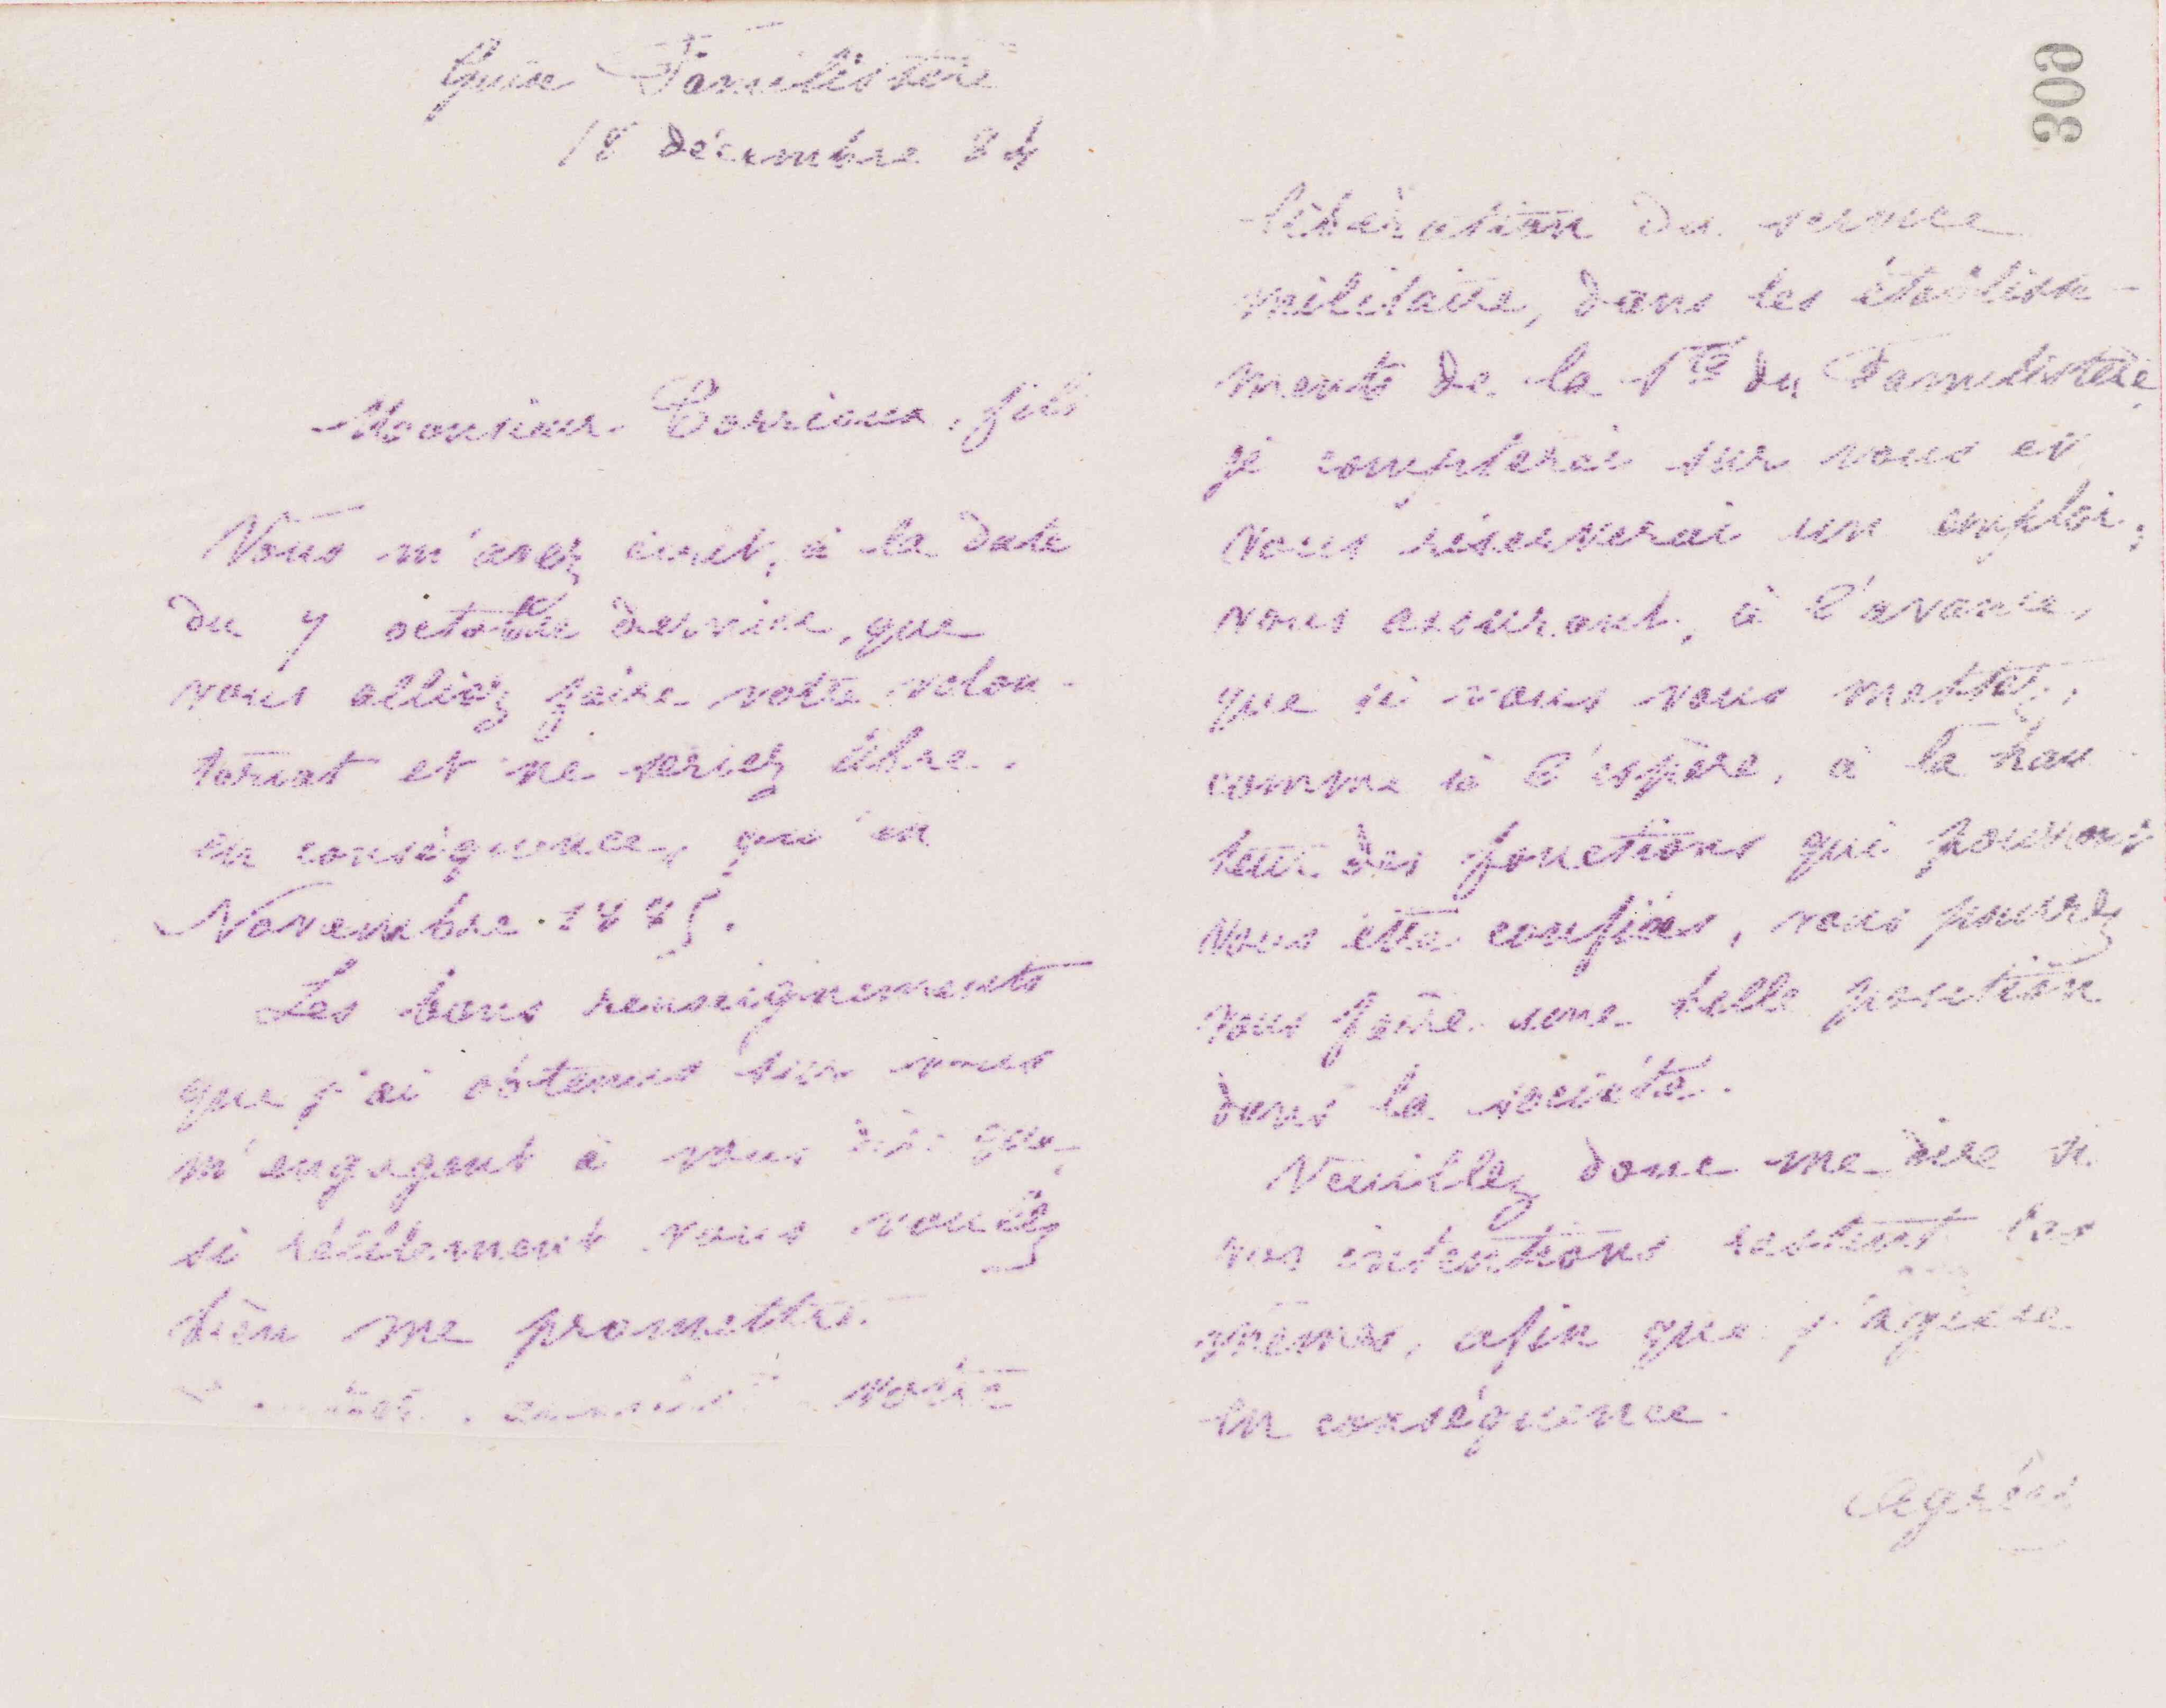 Guise Familistère
18 décembre 84
Monsieur Corrioux, fils
Vous m'avez écrit, à la date
du 7 octobre dernier, que
vous alliez faire votre volon-
tariat et ne seriez libre,
en conséquence, qu'en
Novembre 1885.
Les bons renseignements
que j'ai obtenus sur vous
m'engagent à vous dire que,
si réellement vous voulez
bien me promettre
votre
libération du service
militaire, dans les établisse-
ments de la Sté du Familistère,
je compterai sur vous et
vous réserverai un emploi;
vous assurant, à l'avance,
que si vous vous mettez,
comme je l'espère, à la hau-
teur des fonctions qui pourront
vous être confiées, vous pourrez
vous faire une belle position
dans la société.
Veuillez donc me dire si
vos intentions restent les
mêmes, afin que j'agisse
en conséquence.
Agréez
309